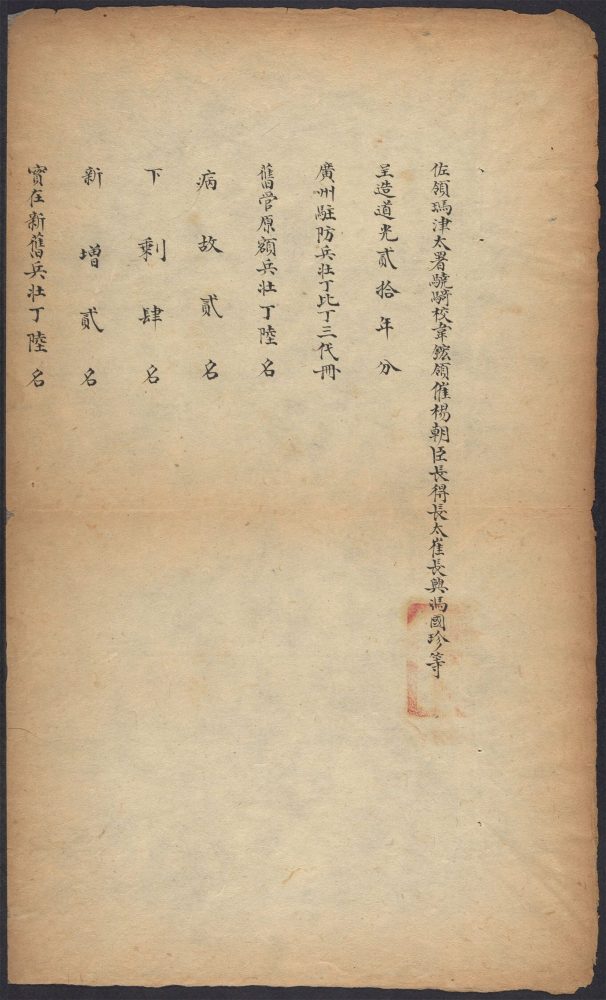 佐領瑪津太署驍騎校韋鋐領催楊朝臣長得長太崔長興馮國珍等
呈造道光貳拾年分
廣州駐防兵壯丁比丁三代冊
舊管原額兵壯丁陸名
病故貳名
下剩肆名
新增貳名
實在新舊兵壯丁陸名